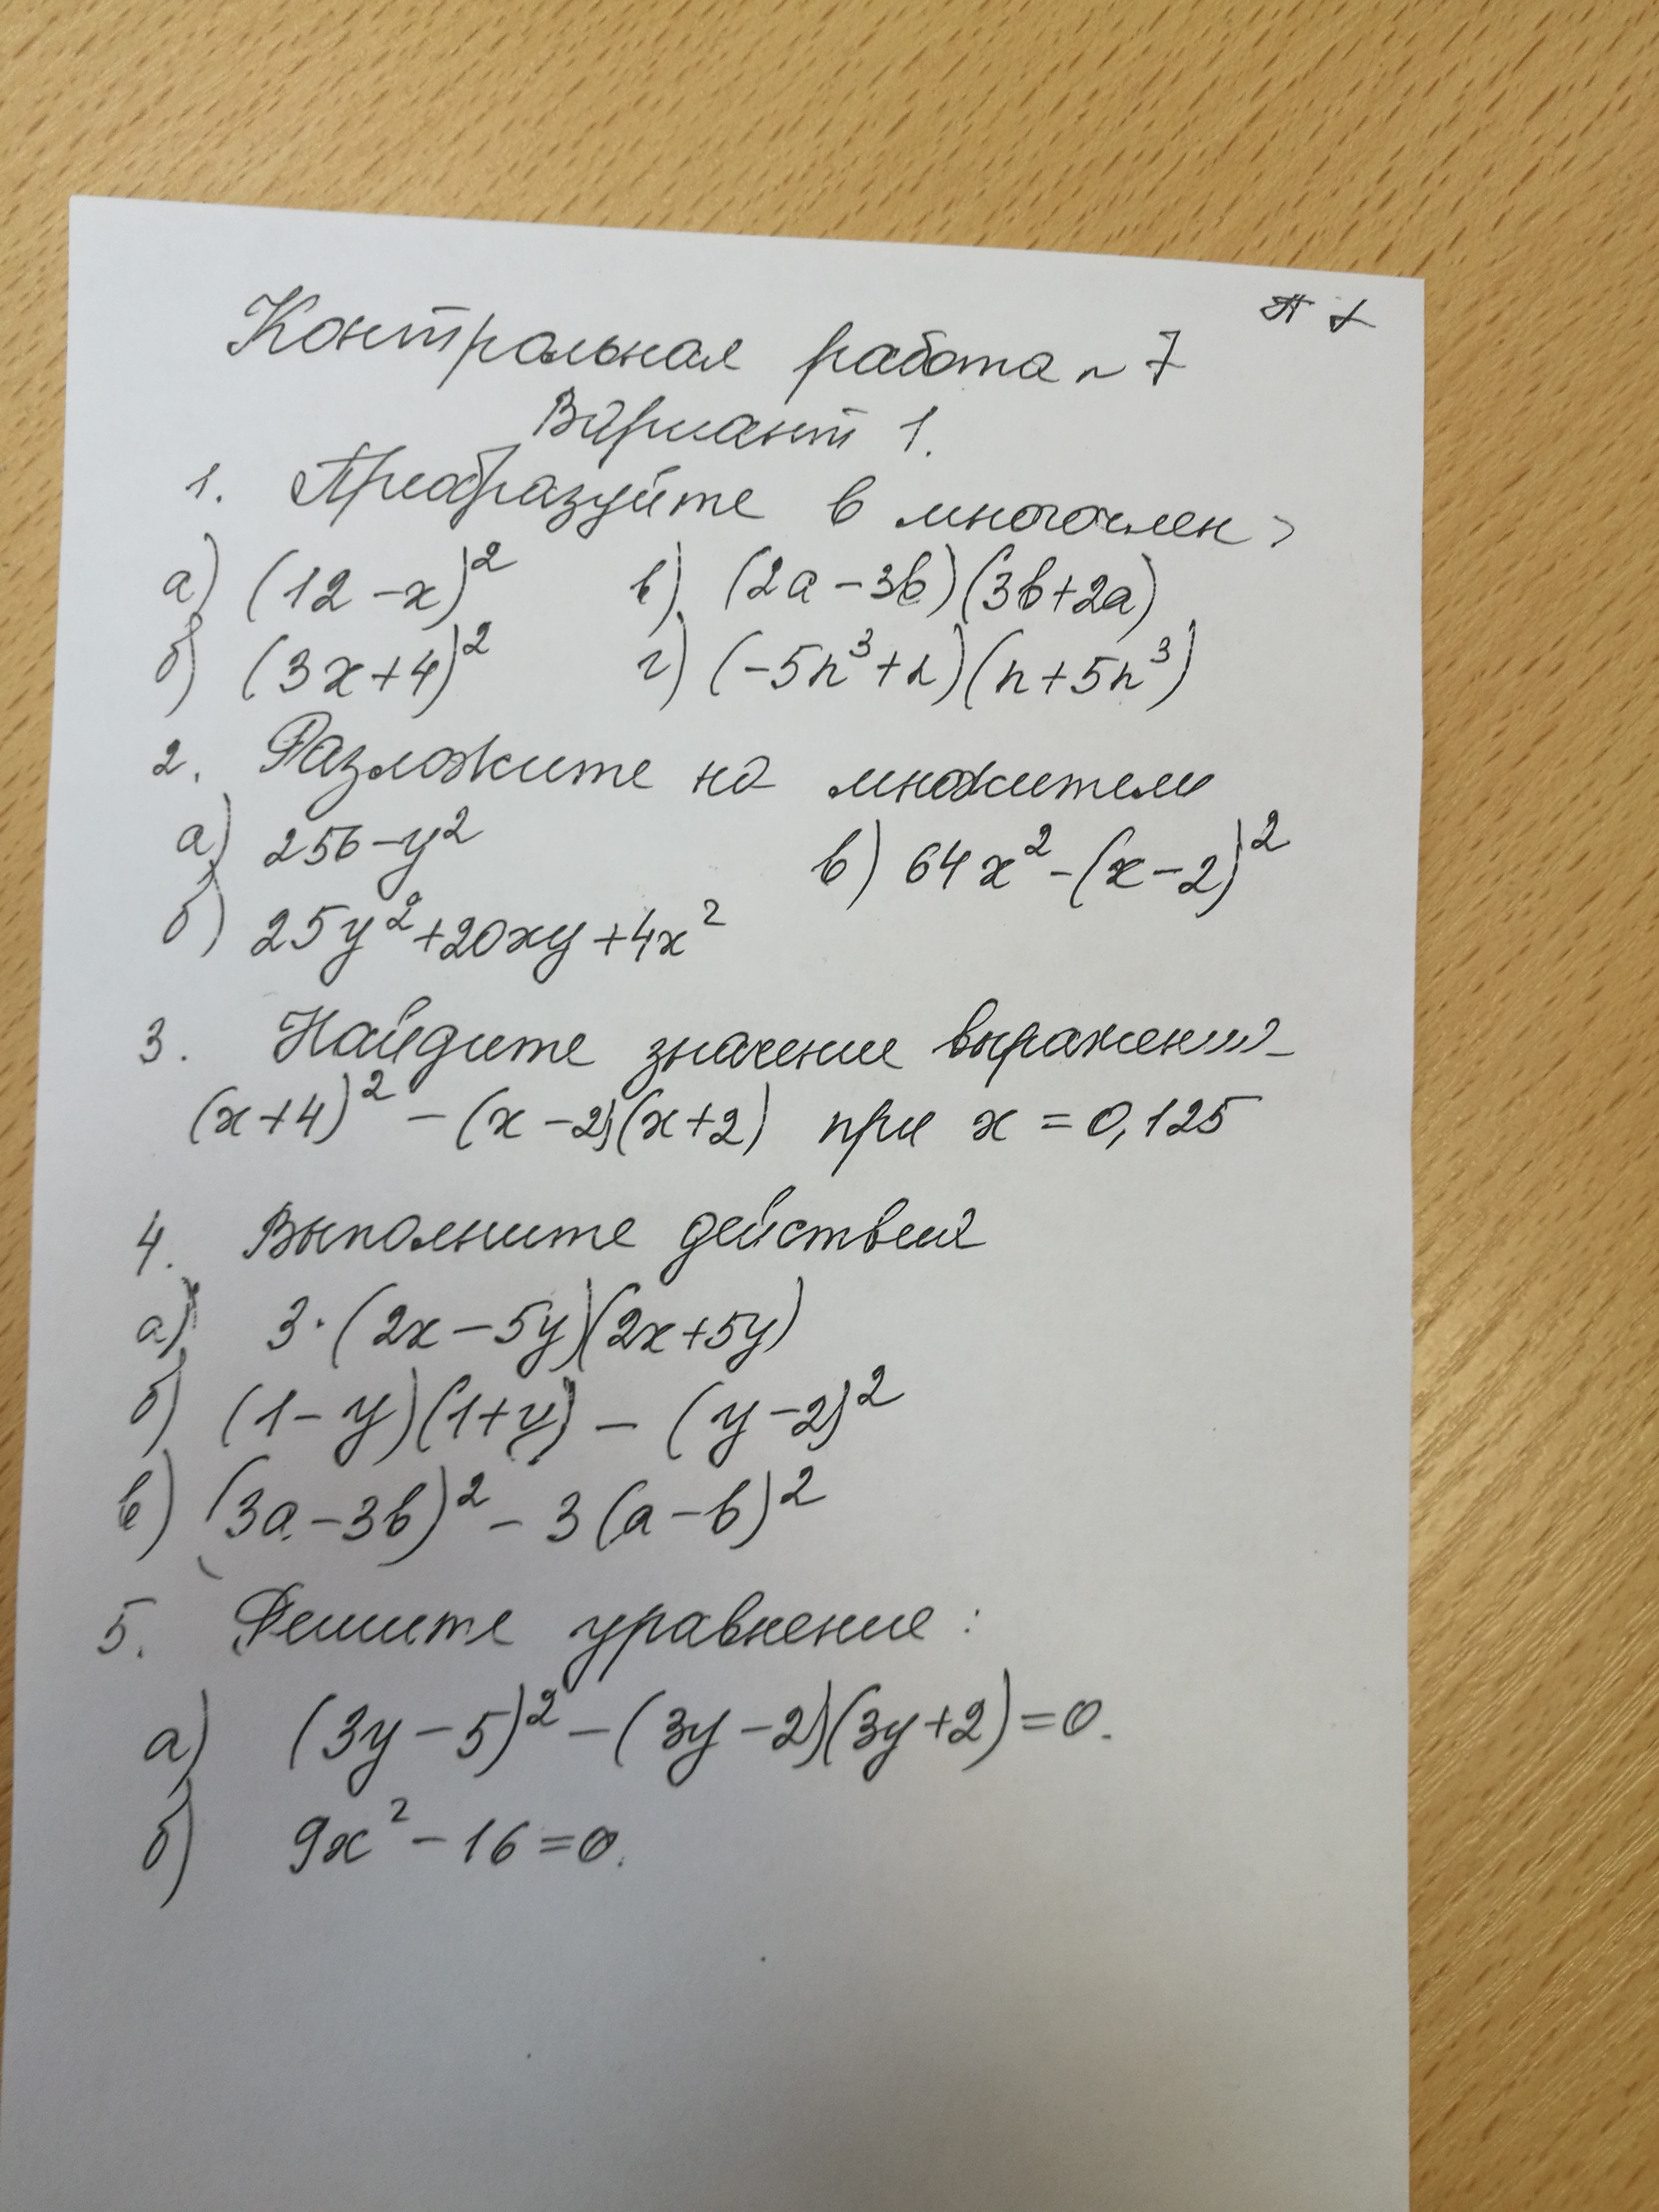 Контрольная работа n 7
Вариант 1.
1. Преобразуйте в многочлен
а) (12 - x)² в) (2a - 3b)(3b + 2a)
б) (3x + 4)² г) (-5n³ + n)(n + 5n³)
2. Разложите на множители
а) 256 - y² в) 64x² - (x - 2)²
б) 25y² + 20xy + 4x²
3. Найдите значение выражения
(x + 4)² - (x - 2)(x + 2) при x = 0,125
4. Выполните действия
а) 3·(2x - 5y)(2x + 5y)
б) (1 - y)(1 + y) - (y - 2)²
в) (3a - 3b)² - 3(a - b)²
5. Решите уравнение:
а) (3y - 5)² - (3y - 2)(3y + 2) = 0.
б) 9x² - 16 = 0.